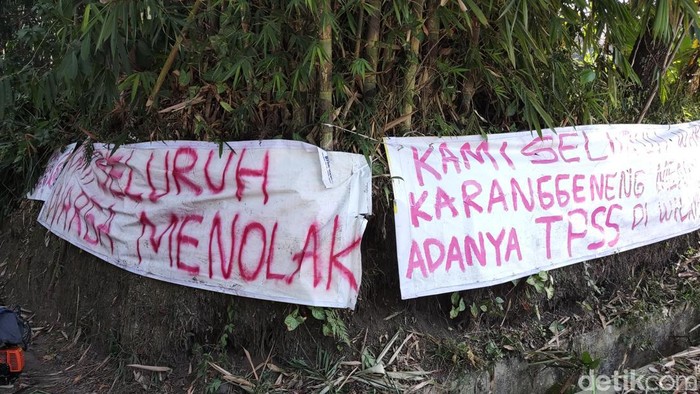 SELURUH
WARGA MENOLAK
KAMI SELURUH
KARANGGENENG
ADANYA TPSS DI
detikcom